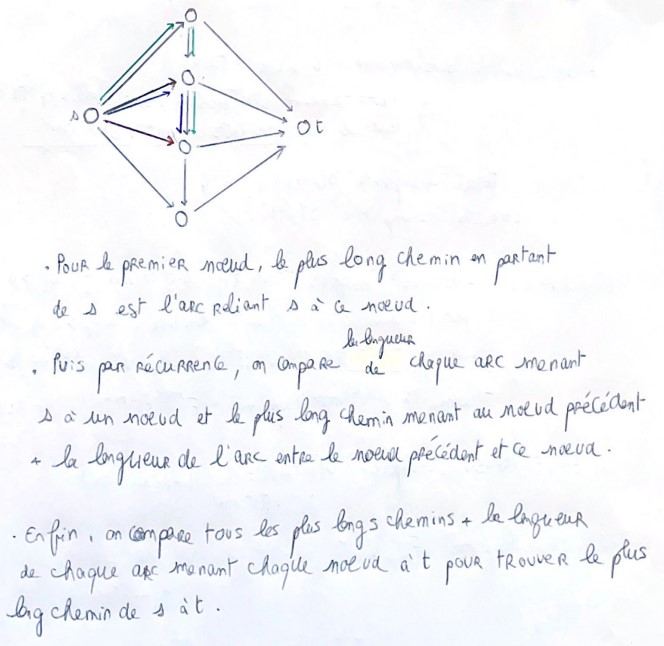 s
t
. Pour le premier nœud, le plus long chemin en partant
de s est l'arc reliant s à ce noeud.
. Puis par récurrence, on compare la longueur de chaque arc menant
s à un noeud et le plus long chemin menant au noeud précédent
+ la longueur de l'arc entre le noeud précédent et ce noeud.
. Enfin, on compare tous les plus longs chemins + la longueur
de chaque arc menant chaque noeud à t pour trouver le plus
long chemin de s à t.